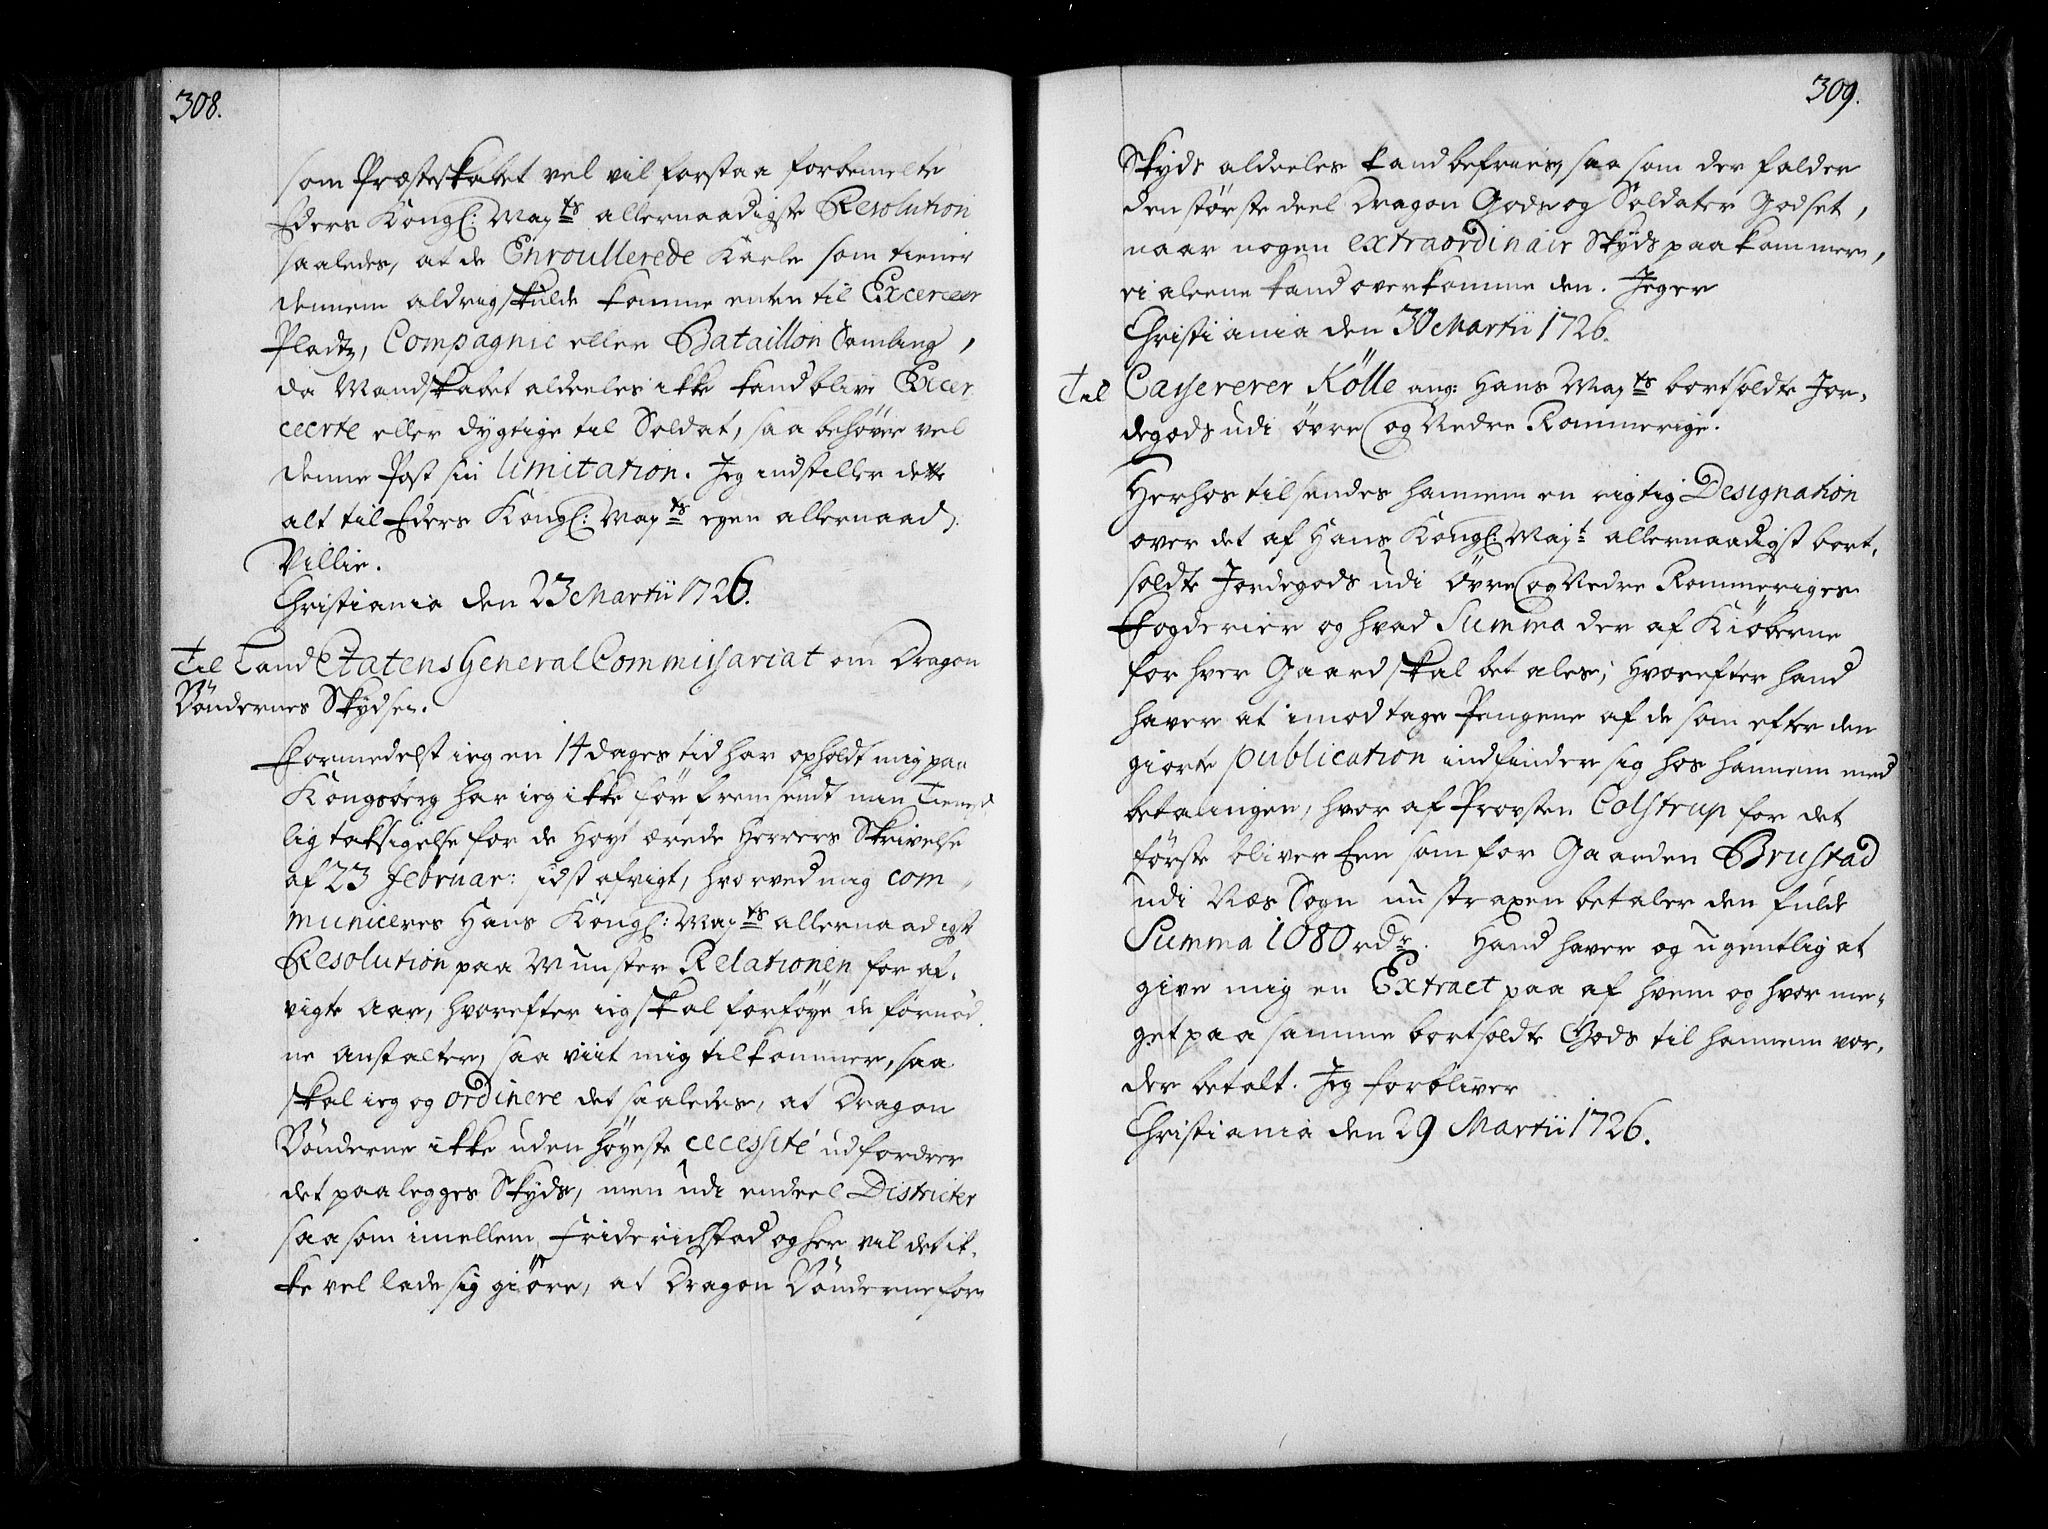 308.
som Præsteskabet vel vil forstaa forbemelte
Eders Kongl: Mayts allernaadigste Resolution
saaledes, at de Enroullerede Karle som tiener
dennem aldrig skulde komme enten til Exerceer
Pladtz, Compagnie eller Bataillon Samling,
da Mandskabet aldeeles ikke kand blive Exer
ceerte eller dygtige til Soldat, saa behøver vel
denne Post sin limitation. Jeg indstiller dette
alt til Eders Kongl: Mayts egen allernaad:
Villie.
Christiania den 23 Martii 1726.
Til Land Etatens General Commissariat om Dragon
Bøndernes Skydsen.
Formedelst ieg en 14 dages tid har opholdt mig paa
Kongsberg har ieg ikke før fremsendt min Tienst
lig taksigelse for de Høyt ærede Herrers Skrivelse
af 23 Februar: sidst afvigt, hvorved mig com
municeres Hans Kongl: Mayts allernaadigst
Resolution paa Munster Relationen for af-
vigte Aar, hvorefter ieg skal forføye de fornød
ne Anstalter, saa viit mig tilkommer, saa
skal ieg og ordinere det saaledes, at Dragon
Bønderne ikke uden høyeste ecessité udfordrer
det paalegges Skyds, men udi endeel Districter
saasom imellem Friderichstad og her vil det ik-
ke vel lade sig giøre, at Dragon Bønderne for
309.
Skyds aldeeles kand befries, saa som der falder
den største deel Dragon Gods og Soldater Godset,
naar nogen extraordinair Skyds paakommer,
ei aleene kand overkomme den. Jeg er
Christiania den 30 Martii 1726.
Til Casserer Kölle ang: Hans Mayts bortsoldte Jor-
degods udi øvre og Nedre Rommerige.
Herhos tilsendes hannem en rigtig Designation
over det af Hans Kongl: Mayt allernaadigst bort-
soldte Jordegods udi Øvre og Nedre Rommeriges
Fogderier og hvad Summa der af Kiøberne
for hver Gaard skal betales; hvorefter hand
haver at imodtage Pengene af de som efter den
giorte publication indfinder sig hos hannem med
betalingen, hvor af Provsten Colstrup for det
første bliver Een som for Gaarden Brustad
udi Næs Sogn nu straxen betaler den fulde
Summa 1080 rdr. Hand haver og ugentlig at
give mig en Extract paa af hvem og hvor me-
get paa samme bortsoldte Gods til hannem vor-
der betalt. Jeg forbliver
Christiania den 29 Martii 1726.